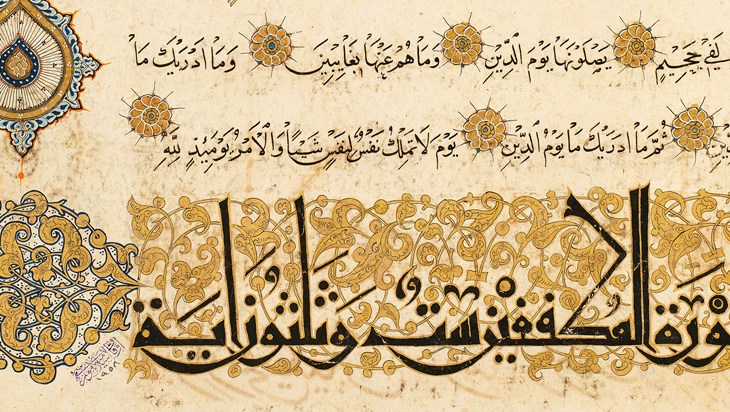 لَفِي جَحِيمٍ يَصْلَوْنَهَا يَوْمَ الدِّينِ وَمَا هُمْ عَنْهَا بِغَايِبِينَ وَمَا اَدْرَيكَ مَا
ثُمَّ مَا اَدْرَيكَ مَا يَوْمُ الدِّينِ يَوْمَ لَا تَمْلِكُ نَفْسٌ لِنَفْسٍ شَيْـًٔا وَالْاَمْرُ يَوْمَئِذٍ لِلّٰهِ
ورة المطففين ست وثلثون اية